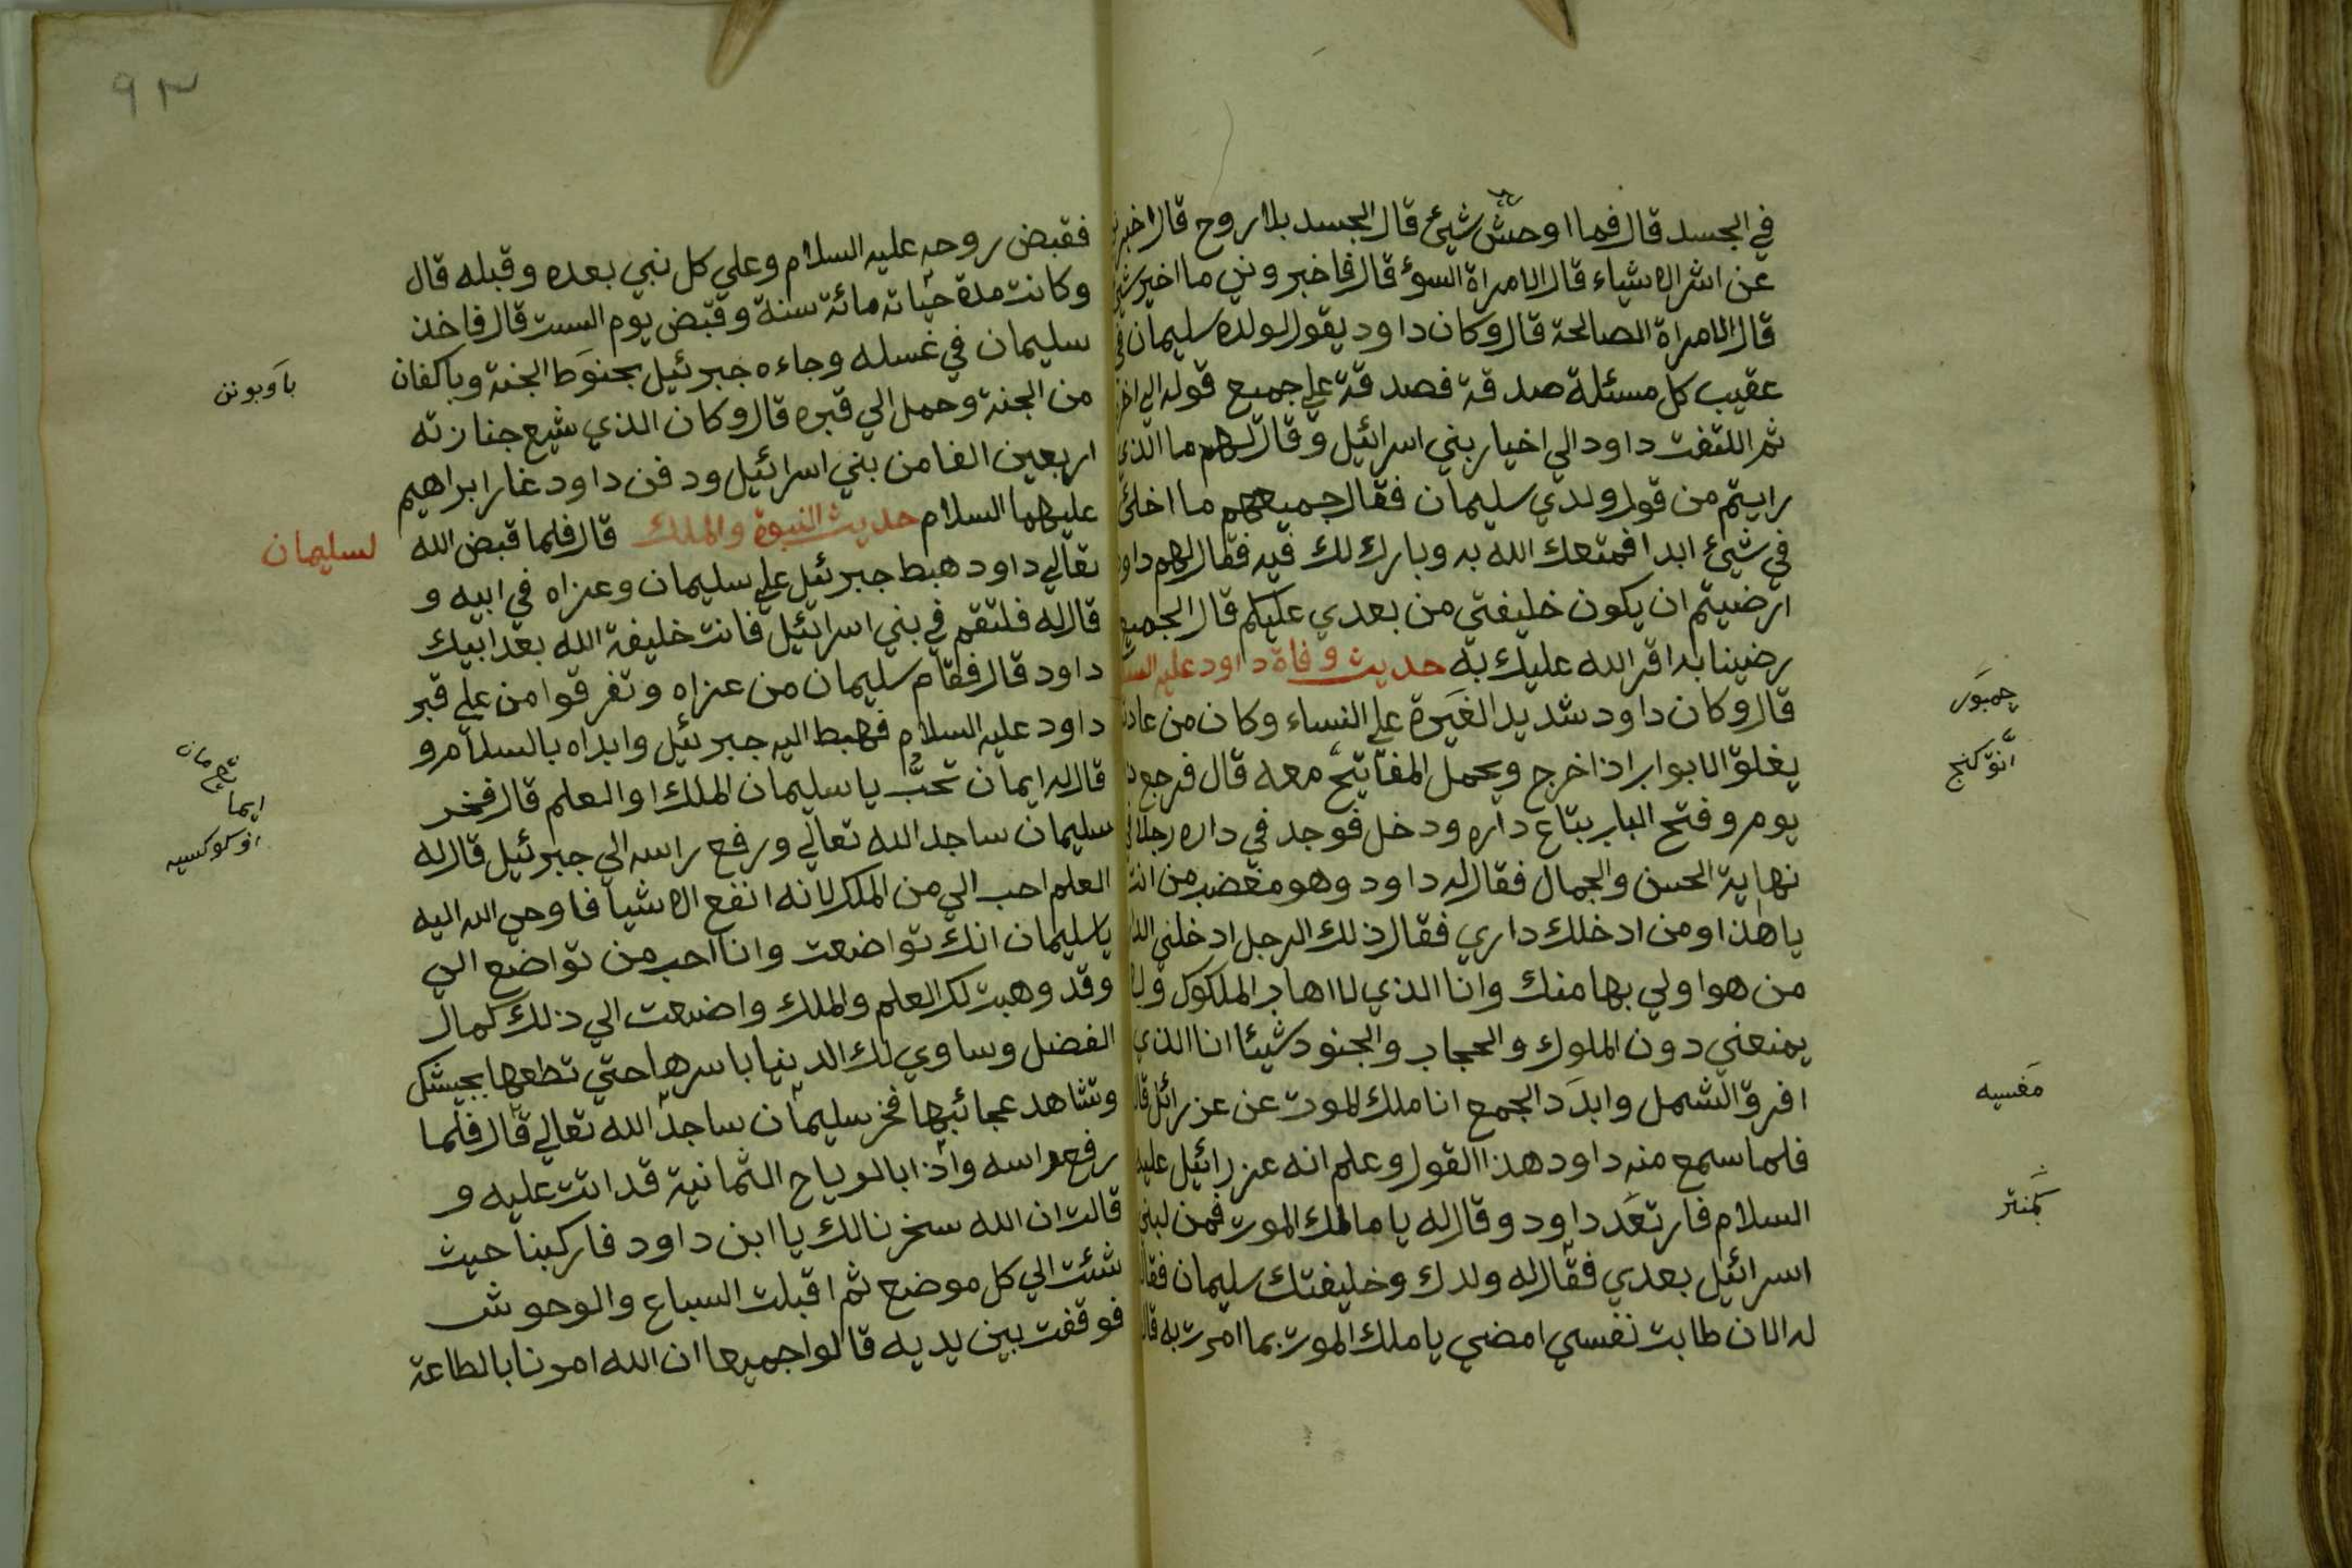 في الجسد قال فما اوحش شيئ قال الجسد بلا روح قال اخبرني
عن اشر الاشياء قال الامراة السوٴ قال فاخبروني ما اخير شيئ
قال الامراة الصالحة قال وكان داود يقول لولده سليمان في
عقيب كل مسئلة صدقة فصدقة علي جميع قوله الي اخره
ثم اللتفت داود الي اخيار بني اسرائيل وقال لهم ما الذي
رايتم من قول ولدي سليمان فقال جميعهم ما اخلئ
في شيئ ابدا فمتعك الله به وبارك لك فيه فقال لهم داود
ارضيتم ان يكون خليفتي من بعدي عليكم قال الجميع
رضينا بد اقر الله عليك به حديث وفاة داود عليه السلا
قال وكان داود شديد الغيَرة علي النساء وكان من عادته
يغلق الابواب اذا خرج ويحمل المفاتيح معه قال فرجع
يوم وفتح الباب بتاع داره ودخل فوجد في داره رجلا
نهاية الحسن والجمال فقال له داود وهو مغضب من انت
يا هذا ومن ادخلك داري فقال ذلك الرجل ادخلني الدا
من هو اولي بها منك وانا الذي لا اهاب الملكوك ولا
يمنعني دون الملوك والحجاب والجنود شيئا انا الذي
افرق الشمل وابدَد الجمع انا ملك الموت عن عزرائل قال
فلما سمع منه داود هذا القول وعلم انه عزرائيل عليه
السلام فارتعَد داود وقال له يا مالك الموت فمن لبني
اسرائيل بعدي فقال له ولدك وخليفتك سليمان فقال
له الان طابت نفسي امضي يا ملك الموت بما امرت به قال
چمبَور
انق كنج
مَغسيه
كمنتر
٩٣
فقبض روحه عليه السلام وعلي كل نبي بعده وقبله قال
وكانت مدة حياته مائة سنة وقبض يوم السبت قال فاخذ
سليمان في غسله وجاءه جبرئيل بحنوَط الجنة وباكفان
من الجنة وحمل الي قبره قال وكان الذي شيع جنازته
اربعين الفا من بني اسرائيل ودفن داود غار ابراهيم
عليهما السلام حديث النبوة والملك لسليمان قال فلما قبض الله
تعالي داود هبط جبرئيل علي سليمان وعزاه في ابيه و
قال له فلتقم في بني اسرائيل فانت خليفة الله بعد ابيك
داود قال فقام سليمان من عزاه وتفرقوا من علي قبر
داود عليه السلام فهبط اليه جبرئيل وابداه بالسلام و
قال له ايمان تحبّ يا سليمان الملك او العلم قال فخر
سليمان ساجد الله تعالي ورفع راسه الي جبرئيل قال له
العلم احب الي من الملك لانه انفع الاشيا فاوحي الله اليه
يا سليمان انك تواضعت وانا احب من تواضع الي
وقد وهبت لك العلم والملك واضعت الي ذلك كمال
الفضل وساوي لك الدنيا باسرها حتي تطعها بجيشك
وتشاهد عجائبها فخر سليمان ساجد الله تعالي قال فلما
رفع راسه واذا بالرياح الثمانية قد اتت عليه و
قالت ان الله سخرنا لك يا ابن داود فاركبنا حيث
شئت الي كل موضع ثم اقبلت السباع والوحوش
فوقفت بين يديه قالوا جميعا ان الله امرنا بالطاعة
باَوبونن
ايما